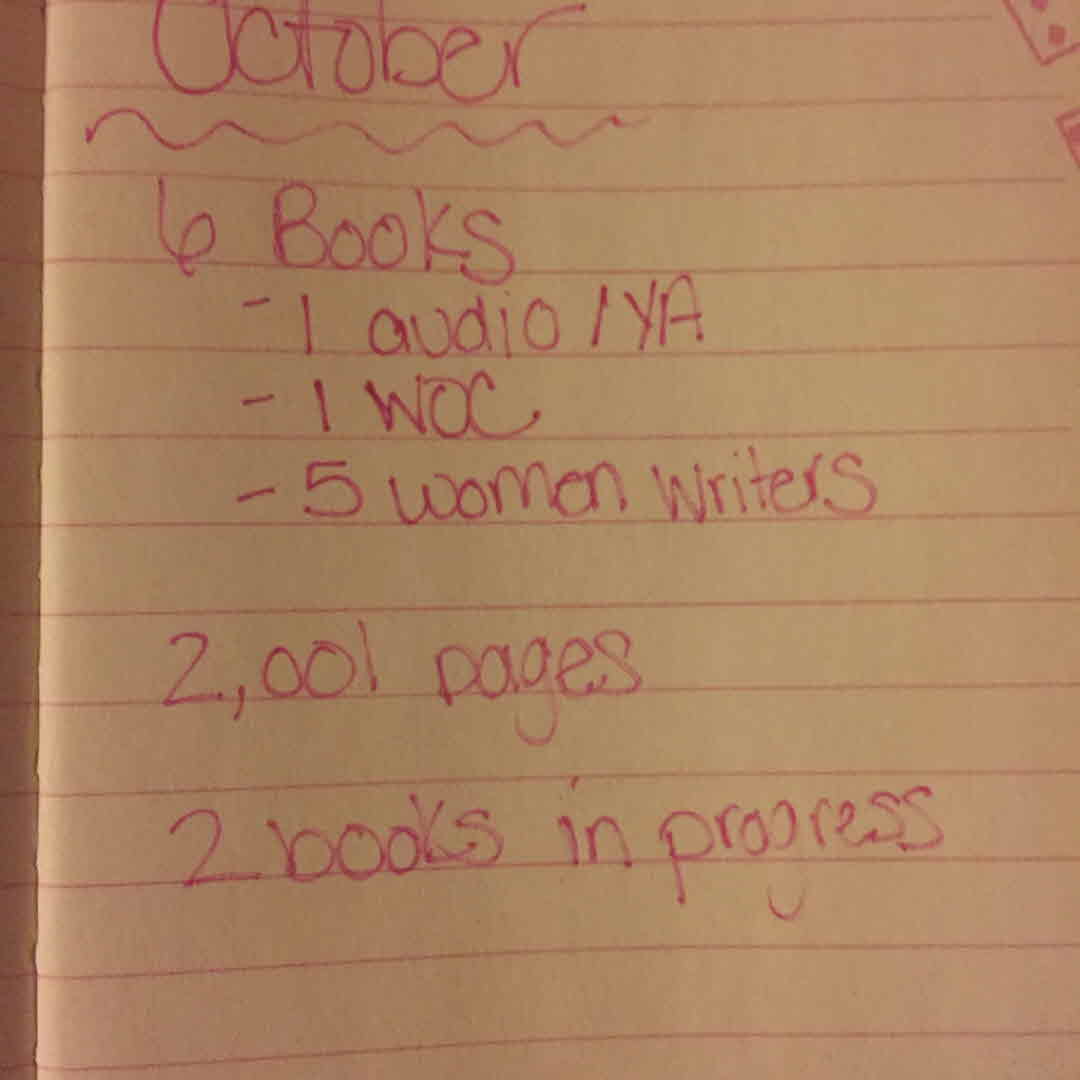 October
6 Books
- 1 audio / YA
- 1 WOC
- 5 women writers
2,001 pages
2 books in progress